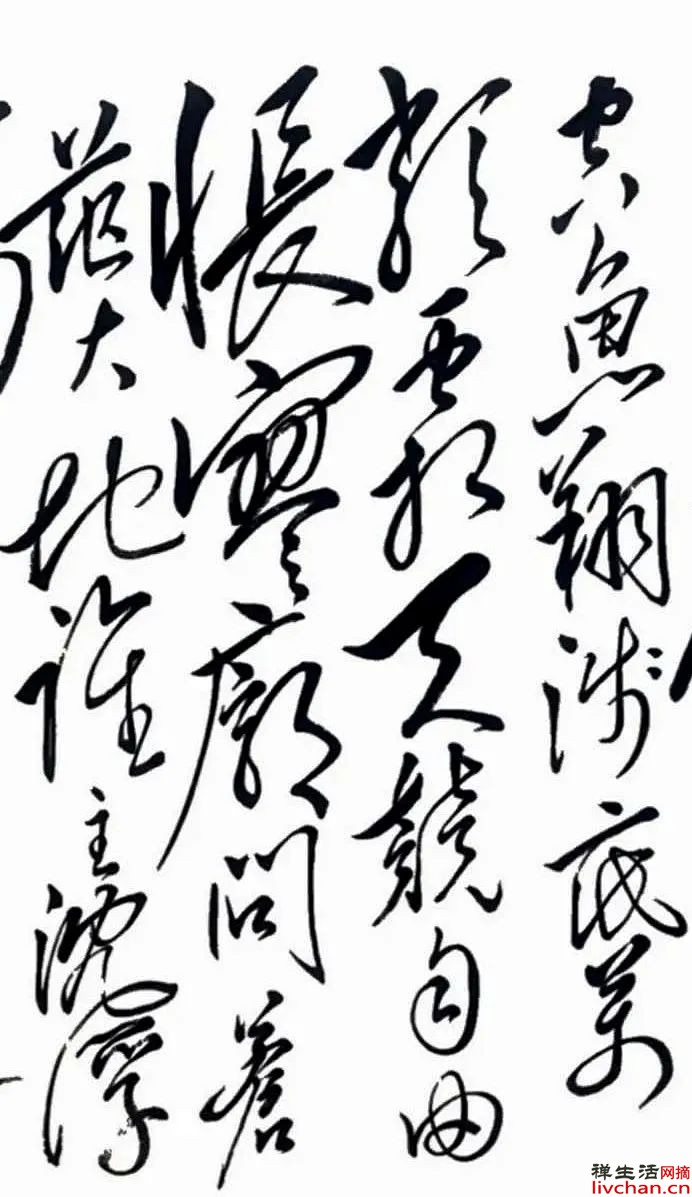 空魚翔淺底萬
類霜天競自由
悵寥廓問蒼
茫大地誰主沉浮
禅生活网摘
livchan.cn